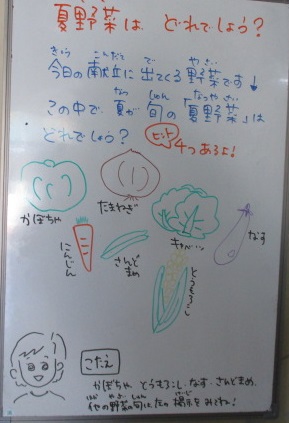 夏野菜は どれでしょう?
きょう こんだて で やさい
今日の献立に出てくる野菜です↓
なつ しゅん なつやさい
この中で、夏が旬の「夏野菜」は
どれでしょう?
ヒント
4つあるよ!
かぼちゃ
たまねぎ
キャベツ
なす
にんじん
さんどまめ
とうもろこし
こたえ
かぼちゃ とうもろこし、なす、さんどまめ
他の野菜の旬は
掲示をみてね!